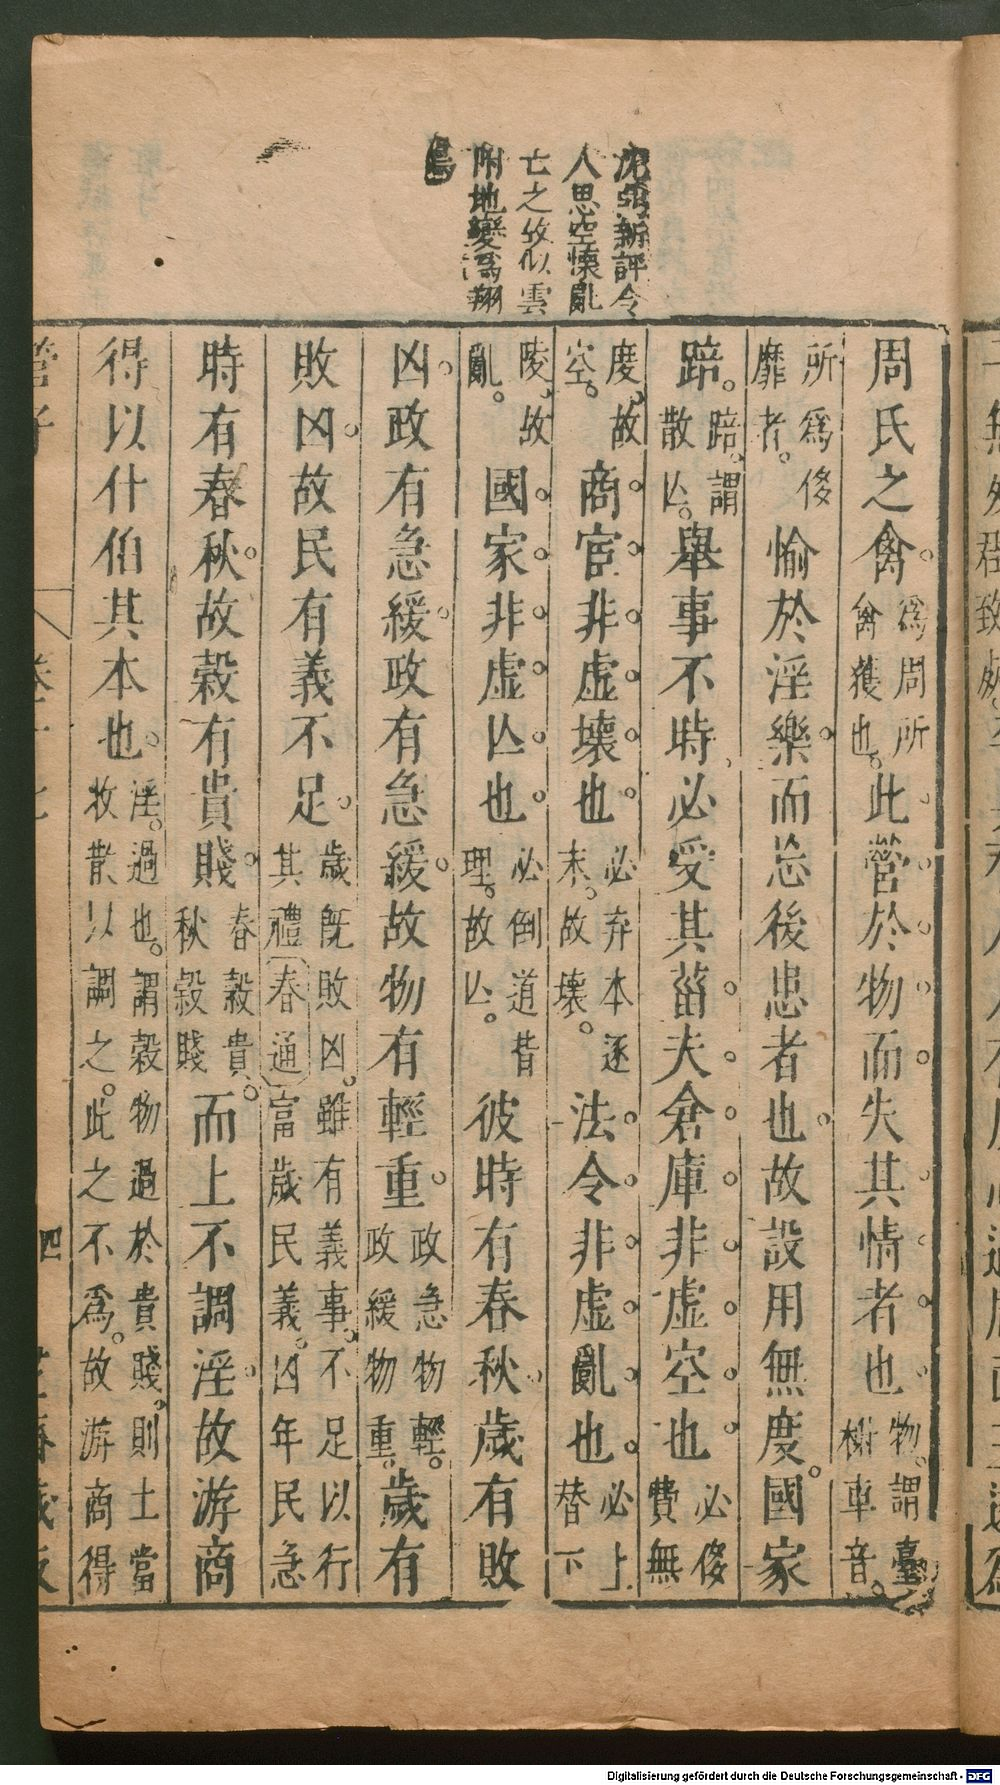 沈鼎新評令
人思空懷亂
亡之故似雲
附地變爲翔
鳥
周氏之禽爲周所禽獲也。此營於物而失其情者也物。謂臺榭車音。
所爲侈靡者。愉於淫樂而忘後患者也故設用無度。國家
踣。踣。謂散亾。舉事不時必受其菑夫倉庫非虛空也必侈費無
度。故空。商宦非虛壞也必弃本逐末。故壞。法令非虛亂也必上替下
陵。故亂。國家非虛亾也必倒道背理。故亾。彼時有春秋歲有敗
凶政有急緩政有急緩故物有輕重政急物輕。政緩物重。歲有
敗凶故民有義不足歲既敗凶。雖有義事。不足以行其禮春通富歲民義。凶年民急
時有春秋故穀有貴賤春穀貴。秋穀賤而上不調淫故游商
得以什伯其本也淫。過也。謂穀物過於貴賤。則土當收散以調之。此之不爲。故游商得
管子
卷十七
四
芝
藏板
Digitalisierung gefördert durch die Deutsche Forschungsgemeinschaft - DFG